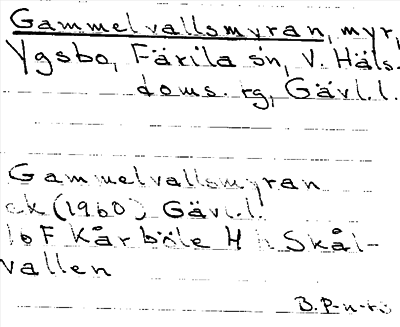 Gammelvallsmyran, myr,
Ygsbo, Färila sn, V. Häls.
doms. rg, Gävl.l.
Gammelvallsmyran
ek (1960) Gävl.l.
16 F Kårböle H Skål-
vallen